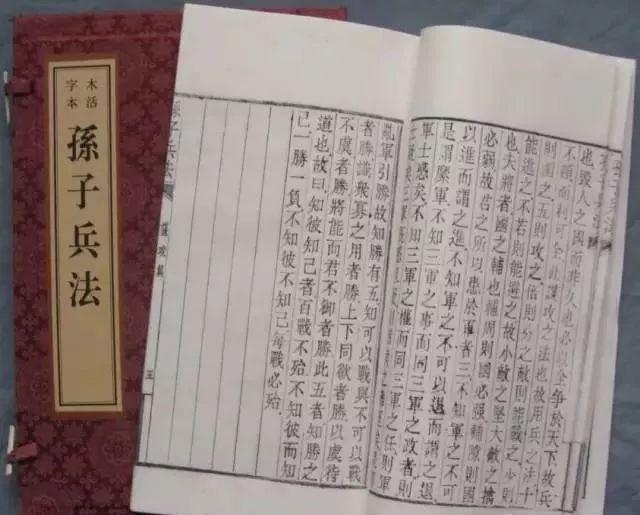 木活
字本
孫子兵法
也毀人之國而非久也必以全爭於天下故兵
不頓而利可全此謀攻之法也故用兵之法十
則圍之五則攻之倍則分之敵則能戰之少則
之不若則能避之故小敵之堅大敵之擒
也夫將者國之輔也輔周則國必强輔隙則國
必弱故君之所以患於軍者三不知軍之不可
以進而謂之進不知軍之不可以退而謂之退
是謂縻軍不知三軍之事而同三軍之政者則
軍士惑矣不知三軍之權而同三軍之任則軍
孫子兵法
謀攻篇
五
亂軍引勝故知勝有五知可以戰與不可以戰
者勝識衆寡之用者勝上下同欲者勝以虞待
不虞者勝將能而君不御者勝此五者知勝之
道也故曰知彼知己者百戰不殆不知彼而知
己一勝一負不知彼不知己每戰必殆